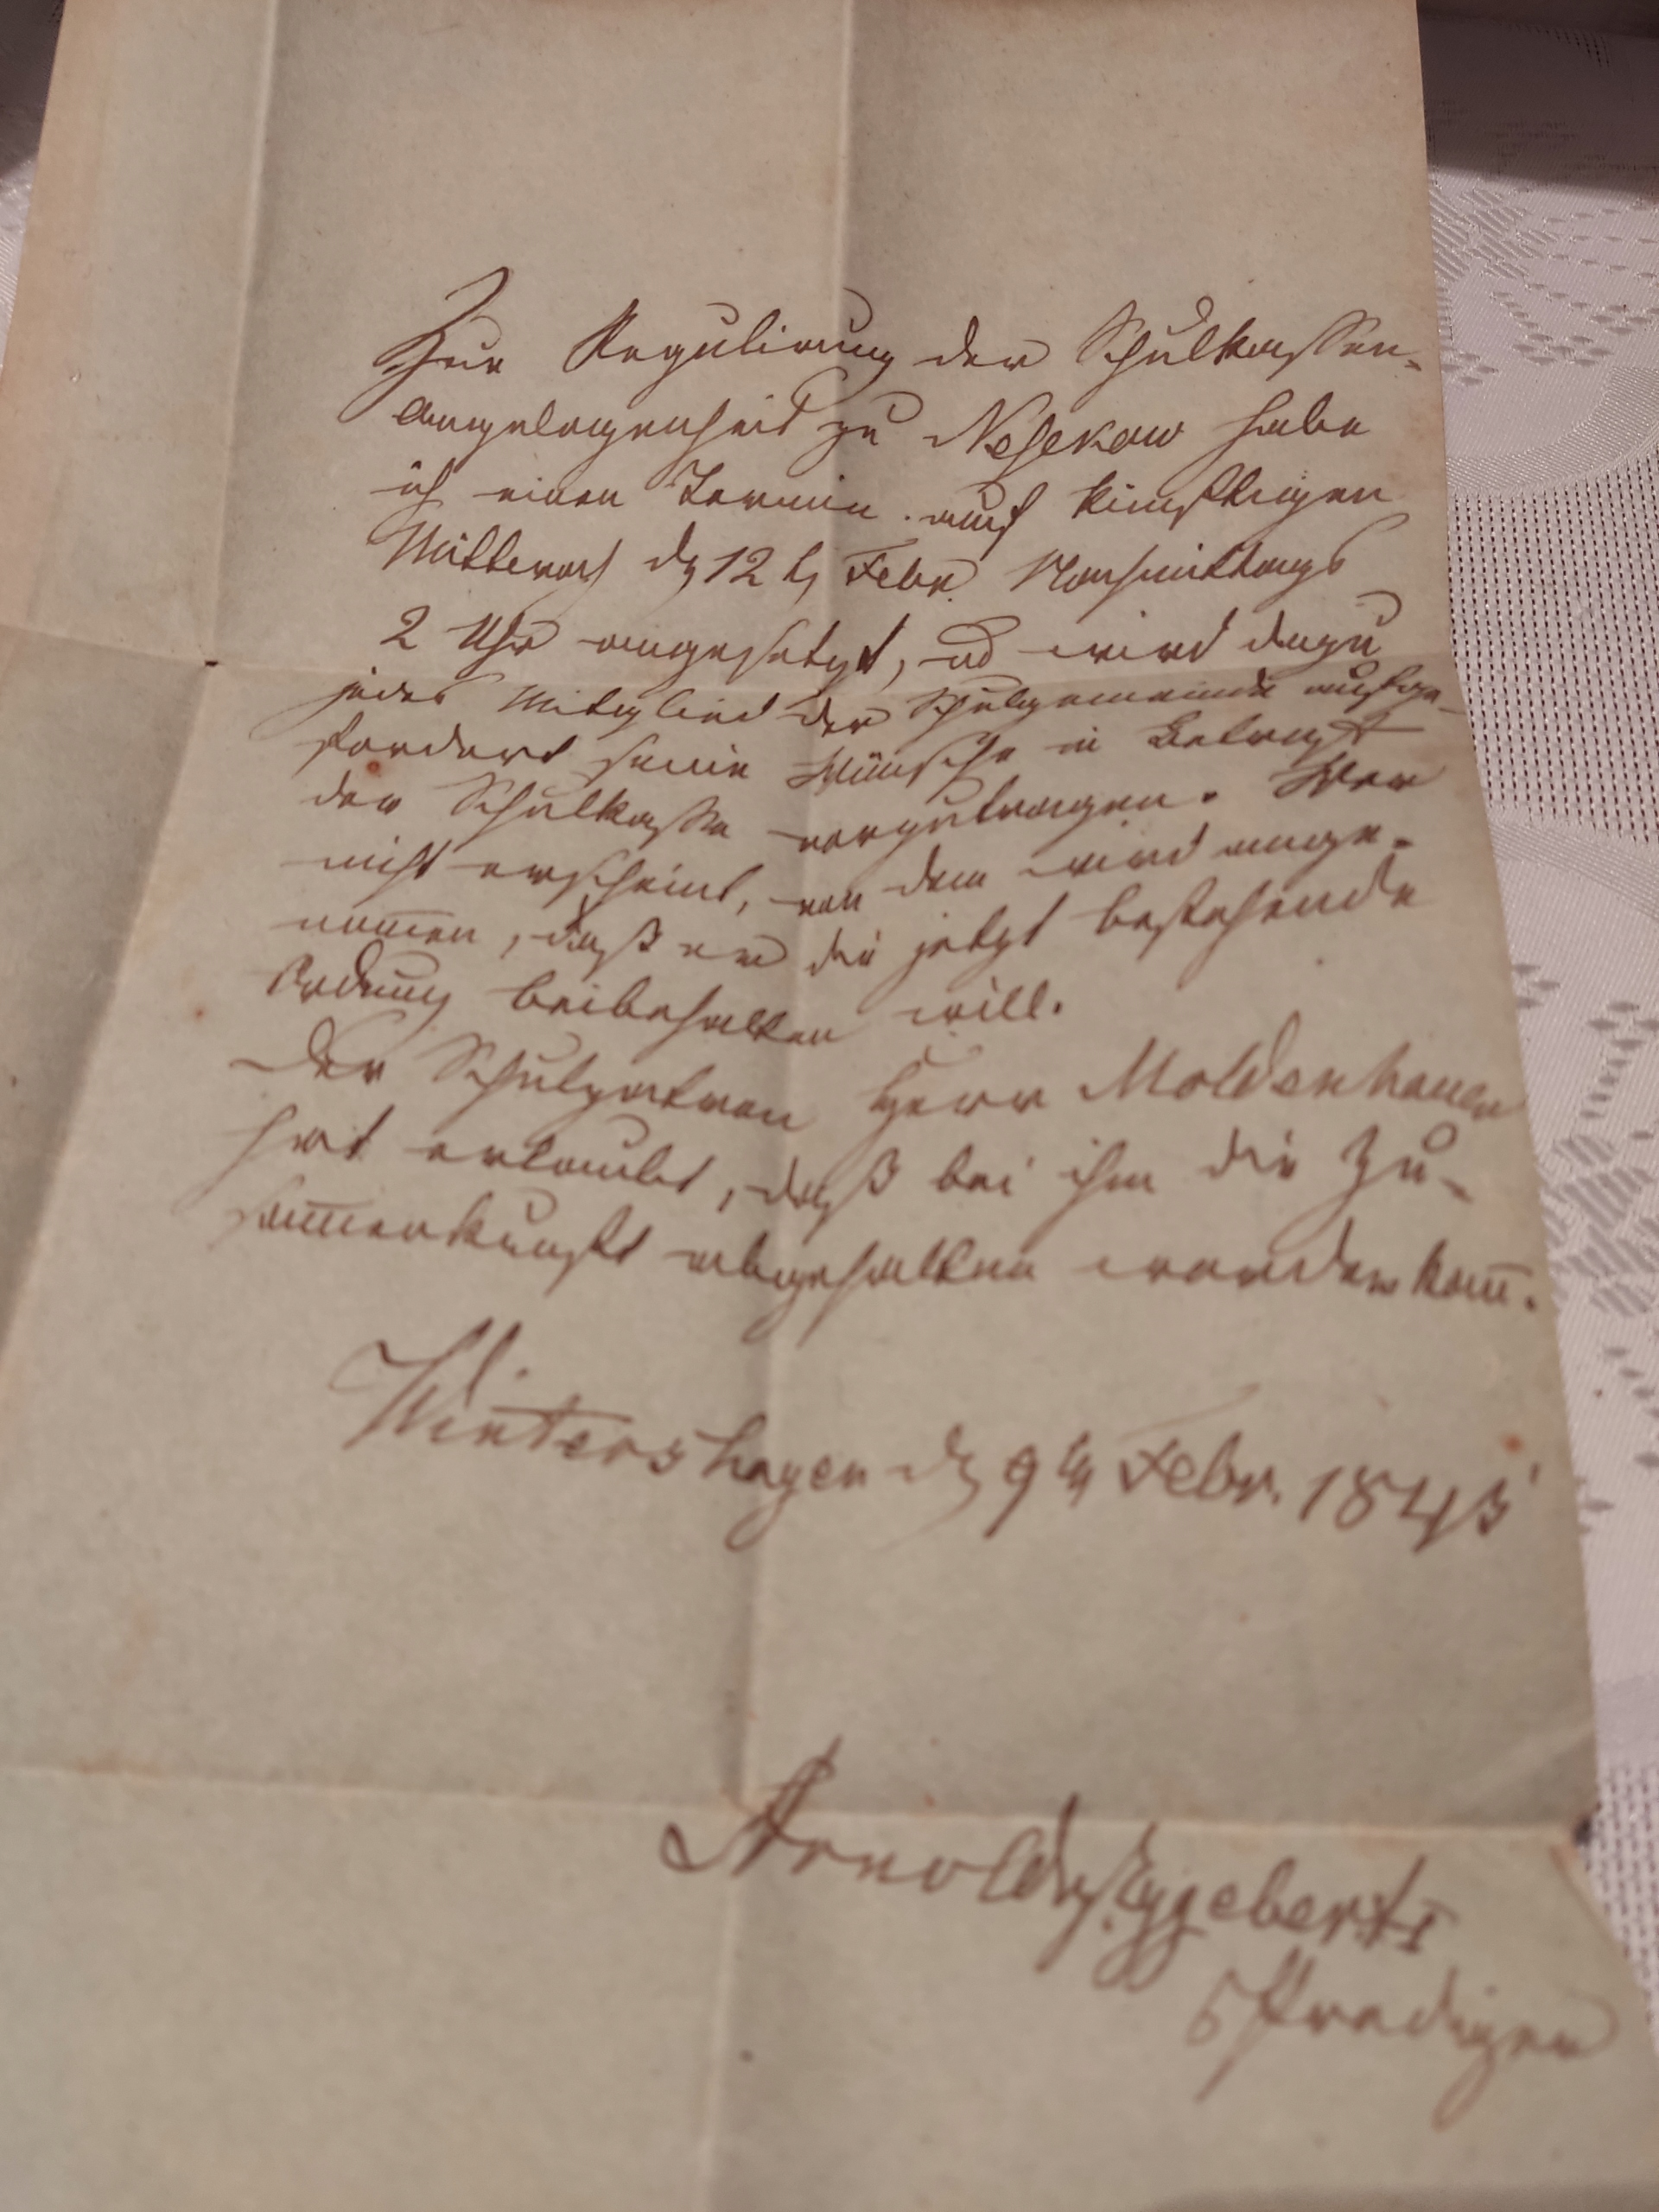 Zur Regulirung der Schulkassen-
angelegenheit zu Nesekow habe
ich einen Termin auf künftigen
Mittwoch d. 12 t. Febr. Nachmittags
2 Uhr angesetzt, und wird dazu
jedes Mitglied der Schulgemeinde aufge-
fordert seine Wünsche in Betreff
der Schulkasse vorzutragen. Wer
nicht erscheint, von dem wird ange-
nom̄en, daß er die jetzt bestehende
Ordnung beibehalten will.
Der Schulpatron Herr Moldenhauer
hat erlaubt, daß bei ihm die Zu-
sam̄enkunft abgehalten werden kan̄.
Wintershagen d. 9 t. Febr. 1845
Arnold
Prediger